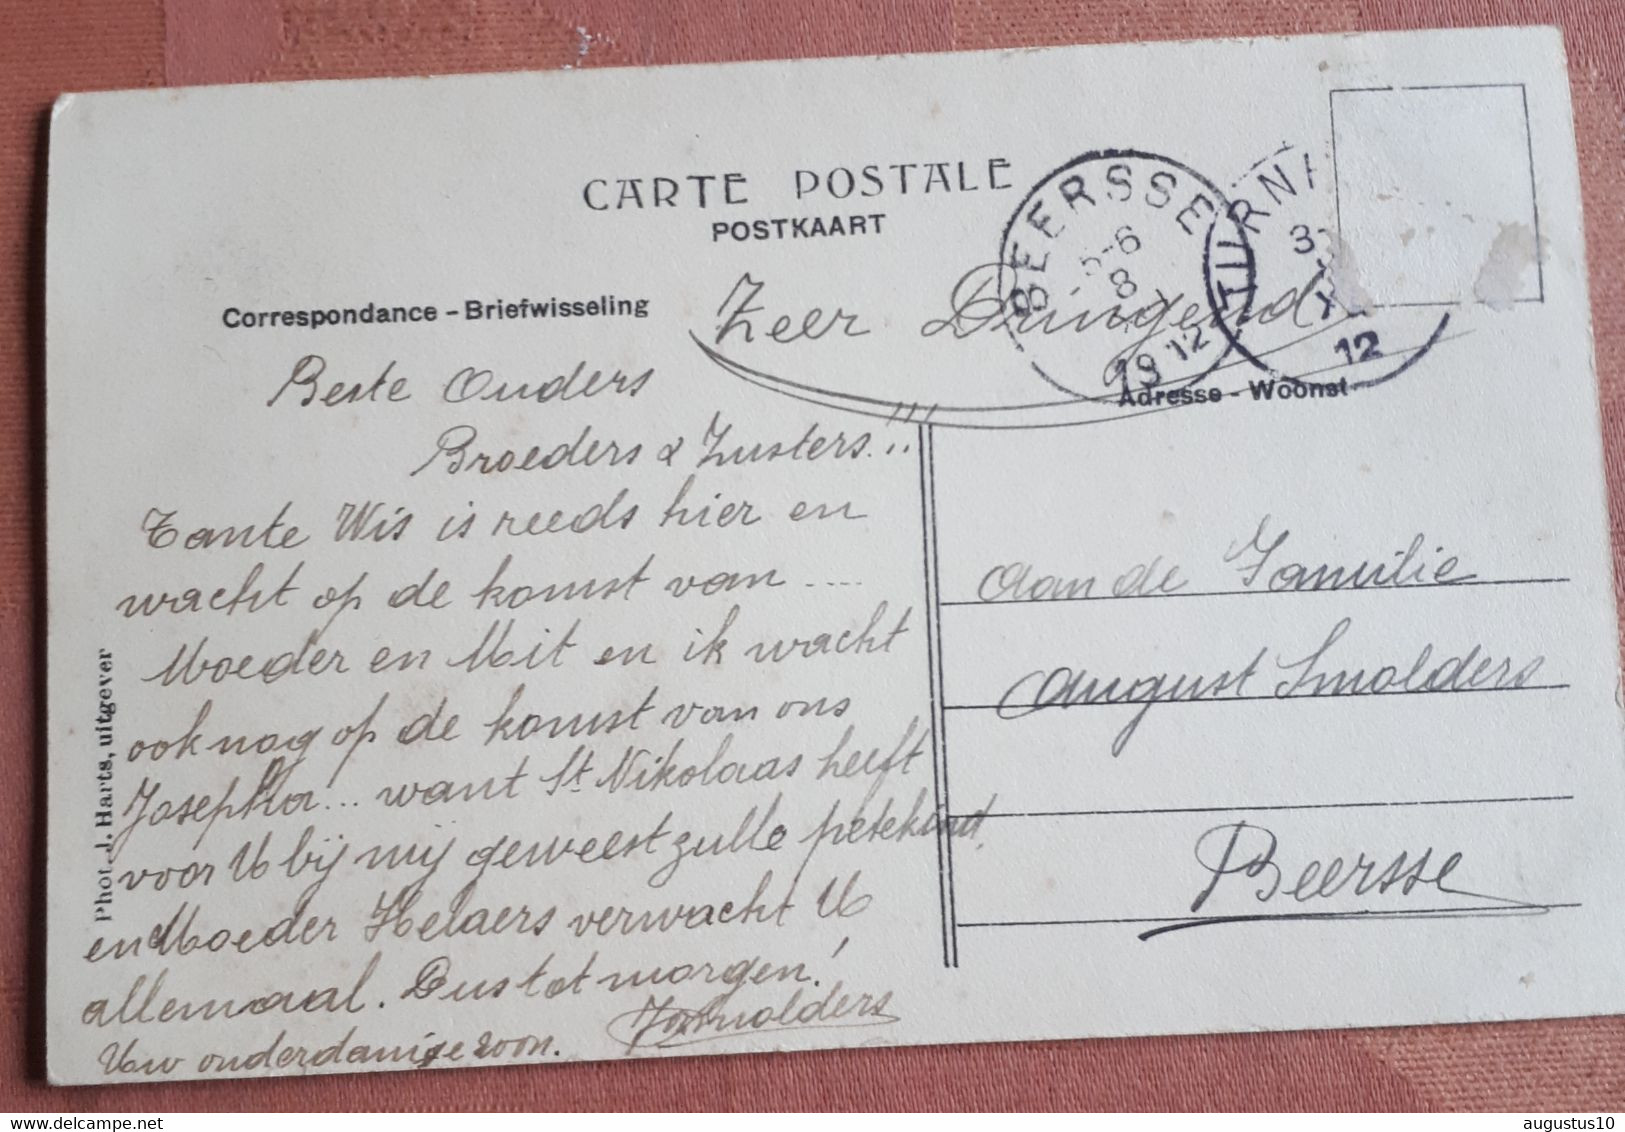 CARTE POSTALE
POSTKAART
BEERSSE
5-6
8
1912
TURNH
3
XII
12
Correspondance - Briefwisseling
Zeer Dringend
Adresse - Woonst
Beste Ouders
Broeders & Zusters!!!
Tante Wis is reeds hier en
wacht op de komst van ....
Moeder en Mit en ik wacht
ook nog op de komst van ons
Josephka... want St Nikolaas heeft
voor U bij mij geweest zulle petekind,
en Moeder Helaers verwacht U
allemaal. Dus tot morgen!
Uw onderdanige zoon. Jos Smolders
Aan de Familie
August Smolders
Beersse
Phot. J. Harts, uitgever
augustus10